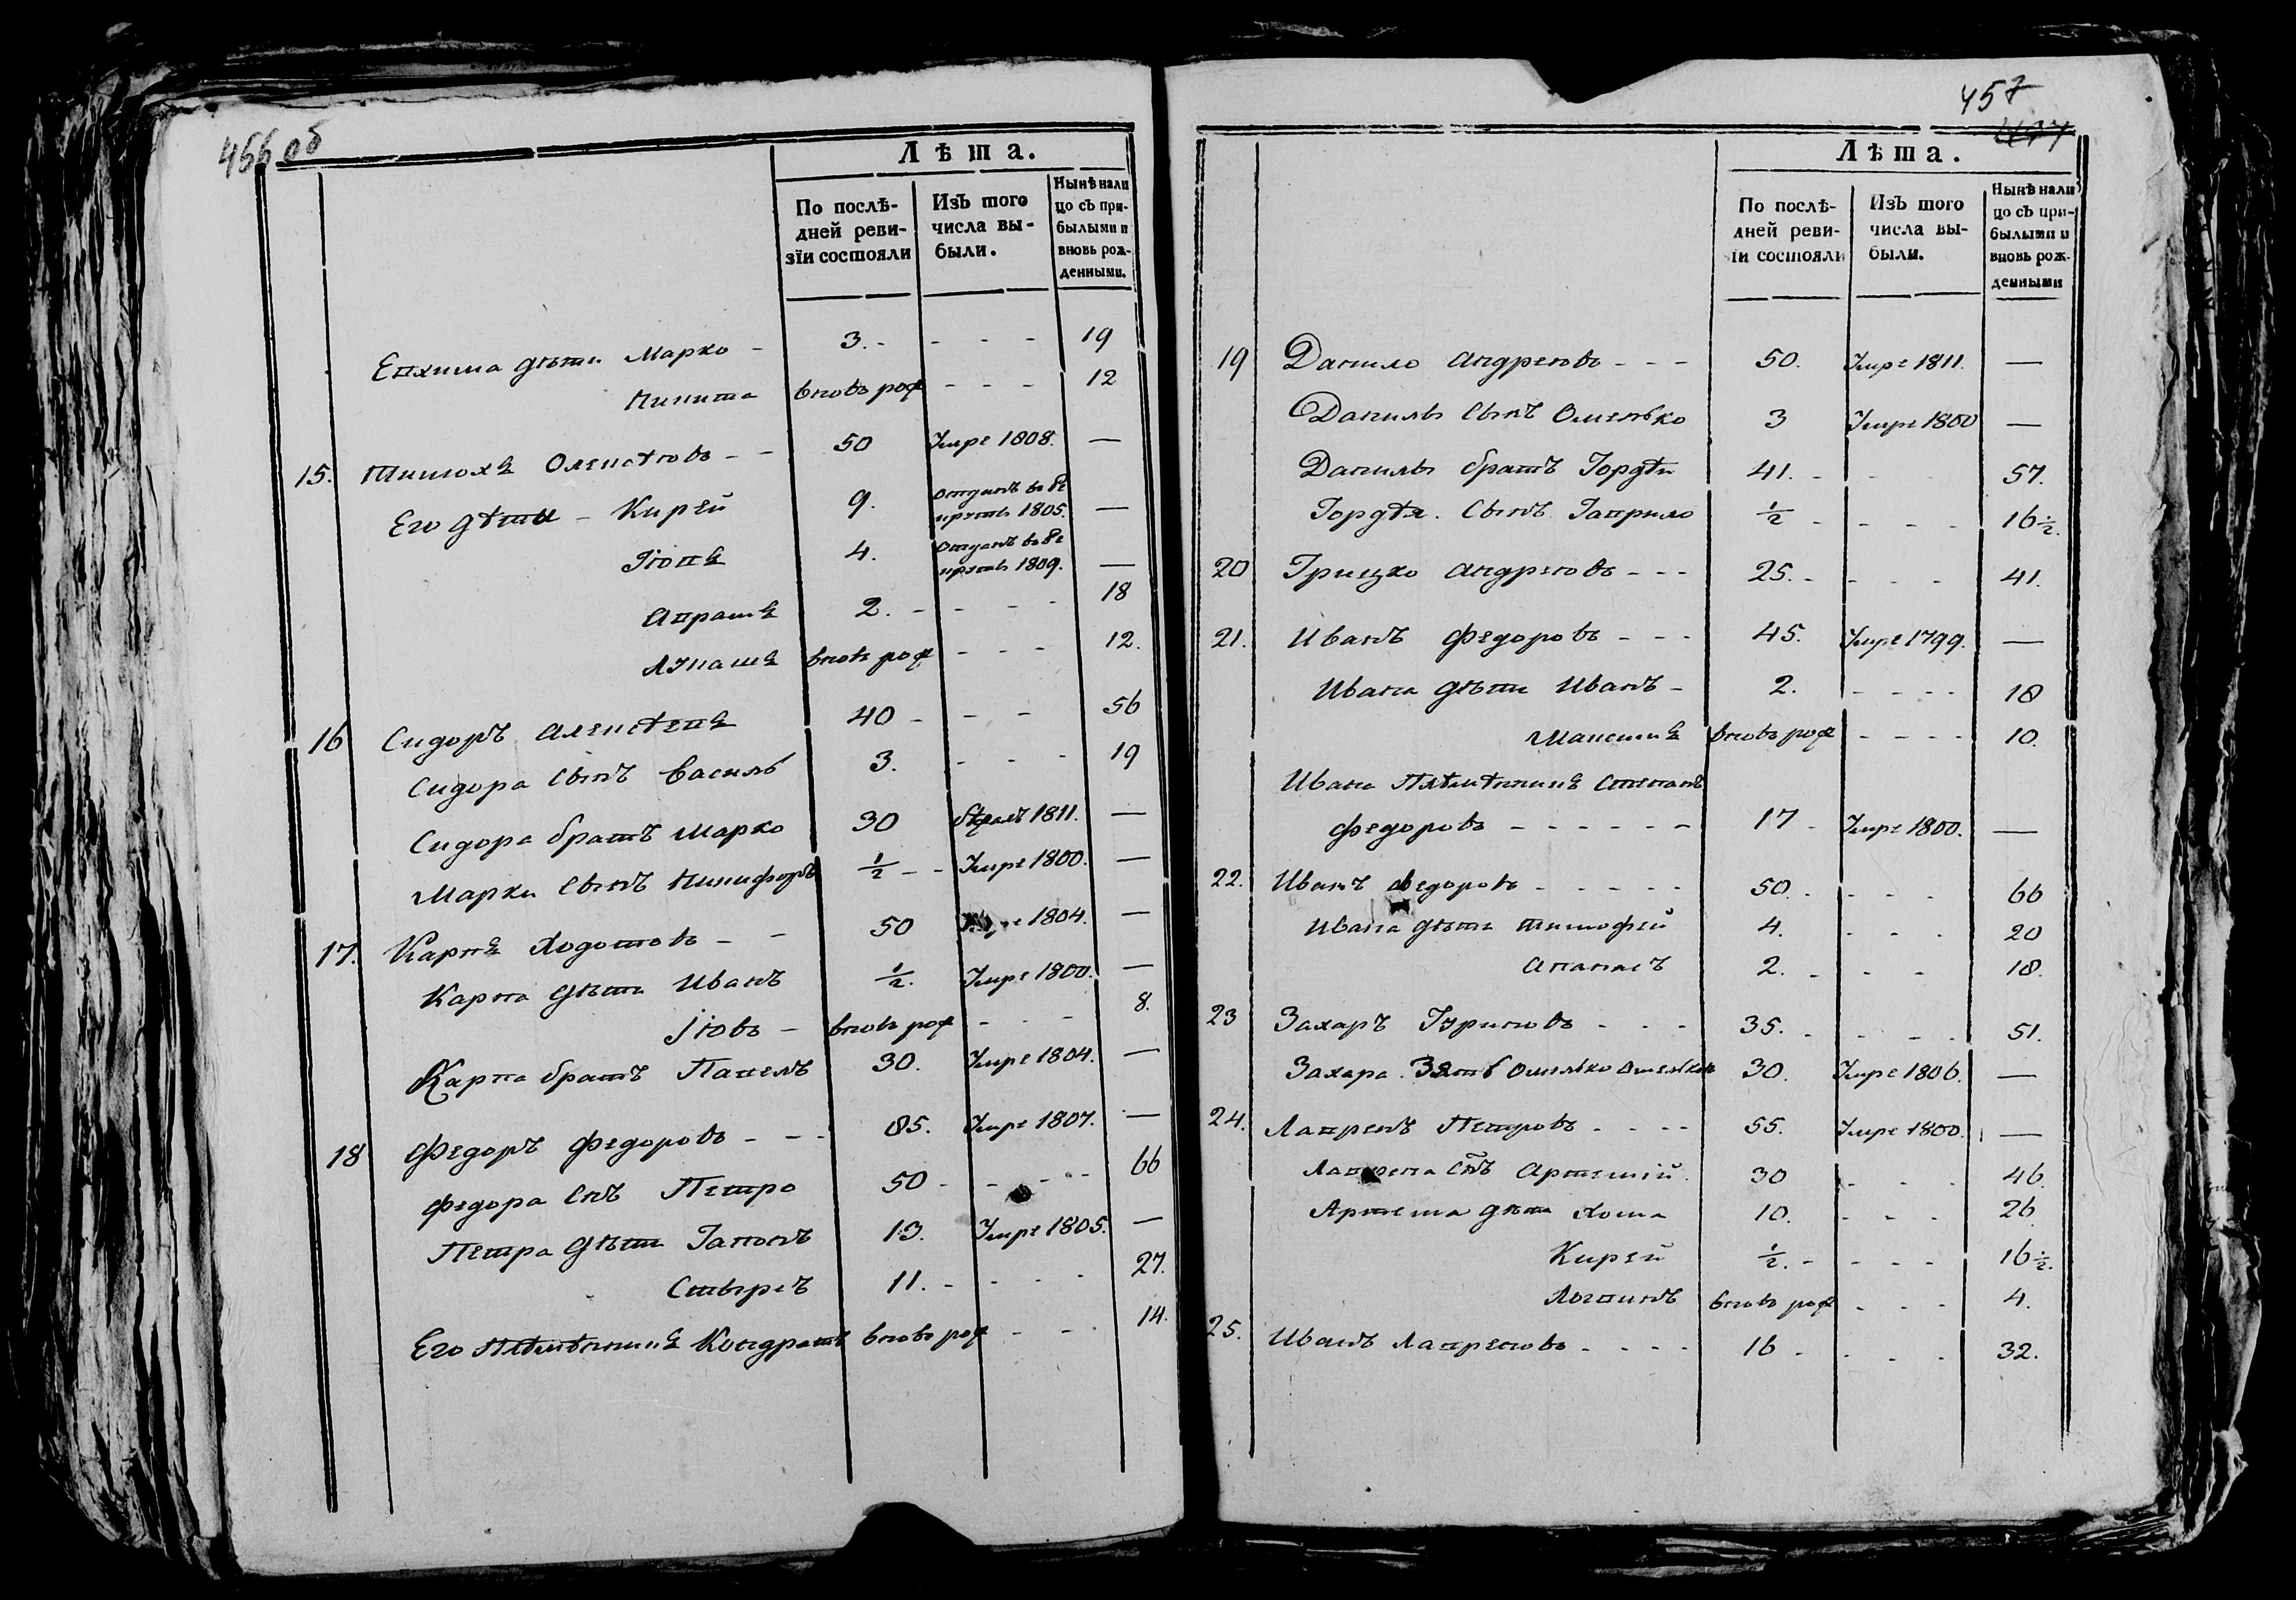 456 об
Лѣта.
По послѣ-
дней реви-
зїи состояли
Изъ того
числа вы-
были.
Нынѣ нали
цо съ при-
былыми и
вновь рож-
денными.
Евхима дѣти Марко - 3. - - - - 19
Никита вновь рож - - - 12
15. Тимохъ Олексѣевъ - - 50 Умре 1808. —
Его дѣти - Кирей 9. отданъ въ ре
круты 1805. —
4. Отданъ въ ре
круты 1809. —
2. - - - - 18
Лукашъ вновь рож - - - 12.
16 Сидоръ Алексѣевъ 40 - - - 56
Сидора сынъ Василь 3. - - - 19
Сидора братъ Марко 30 бежалъ 1811. —
Марки сынъ Никифоръ ½ - - Умре 1800. —
17. Карпъ Ходотовъ - - 50 Умре 1804. —
Карпа дѣти Иванъ ½. Умре 1800. —
Іовъ - вновь рож - - - 8.
Карпа братъ Павелъ 30. Умре 1804. —
18 Федоръ Федоровъ - - - 85. Умре 1807. —
Федора снъ Петро 50 - - - - 66
Петра дѣти Гапонъ 13. Умре 1805. —
Спирѣ 11. - - - - 27.
Его племѣнникъ Кондратъ вновь рож - - 14.
457
Лѣта.
По послѣ-
дней реви-
їи состояли
Изъ того
числа вы-
были.
Нынѣ нали
цо съ при-
былыми и
вновь рож-
денными
19 Данило Андреевъ - - - 50. Умре 1811. —
Данилы сынъ Омелько 3 Умре 1800 —
Данилы братъ Гордѣй 41. - - - 57.
Гордѣя. Сынъ Гаврило ½ - - - - 16½.
20 Грицко Андреевъ - - - 25. - - - - 41.
21. Иванъ Федоровъ - - - 45. Умре 1799. —
Ивана дѣти Иванъ - 2. - - - - 18
Максимъ вновь рож - - - - 10.
Ивана Плѣмѣнникъ Степанъ
Федоровъ - - - - - - 17 - Умре 1800. —
22. Иванъ Федоровъ - - - - - 50. - - - - 66
Ивана дѣти Тимофей 4. - - - 20
Апанасъ 2. - - - 18.
23 Захаръ Гуриновъ - - - 35. - - - - 51.
Захара Зять Омелько 30. Умре 1806. —
24. Лавренъ Петровъ - - - - 55. Умре 1800. —
Лаврена Снъ Артемій. 30 - - - 46.
Артема дѣти Хома 10. - - - 26
Кирей ½. - - - - 16½.
Логвинъ вновь рож - - - 4.
25. Иванъ Лавреновъ - - - - 16 - - - - 32.